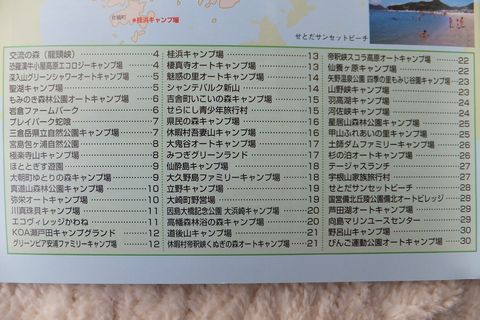 桂浜キャンプ場
せとだサンセットビーチ
交流の森（龍頭峡） 4
恐羅漢牛小屋高原エコロジーキャンプ場 4
深入山グリーンシャワーオートキャンプ場 5
聖湖キャンプ場 5
もみのき森林公園オートキャンプ場 6
岩倉ファームパーク 6
プレイパーク蛇喰 7
三倉岳県立自然公園キャンプ場 7
宮島包ヶ浦自然公園 8
極楽寺山キャンプ場 8
ほととぎす遊園 9
大朝町ゆとりの森キャンプ場 9
真道山森林公園キャンプ場 10
弥栄オートキャンプ場 10
川真珠貝キャンプ場 11
エコヴィレッジかわね 11
KOA瀬戸田キャンプグランド 12
グリーンピア安浦ファミリーキャンプ場 12
桂浜キャンプ場 13
優真寺オートキャンプ場 13
魅惑の里オートキャンプ場 14
シャンテパルク新山 14
吉舎町いこいの森キャンプ場 15
せらにし青少年旅行村 15
県民の森キャンプ場 16
休暇村吾妻山キャンプ場 16
大鬼谷オートキャンプ場 17
みつぎグリーンランド 17
仙酔島キャンプ場 18
大久野島ファミリーキャンプ場 18
立野キャンプ場 19
大崎町野営場 19
因島大橋記念公園 大浜崎キャンプ場 20
高幡森林浴の森キャンプ場 20
道後山キャンプ場 21
休暇村帝釈峡くぬぎの森オートキャンプ場 21
帝釈峡スコラ高原オートキャンプ場 22
仙養ヶ原キャンプ場 22
矢野温泉公園 四季の里もみじ谷キャンプ場 23
山野峡キャンプ場 23
羽高湖キャンプ場 24
河佐峡キャンプ場 24
星居山森林公園キャンプ場 25
甲山ふれあいの里キャンプ場 25
土師ダムファミリーキャンプ場 26
杉の泊オートキャンプ場 26
テージャスランチ 27
宇根山家族旅行村 27
せとだサンセットビーチ 28
国営備北丘陵公園備北オートビレッジ 28
芦田湖オートキャンプ場 29
向島マリンユースセンター 29
野呂山キャンプ場 30
びんご運動公園オートキャンプ場 30